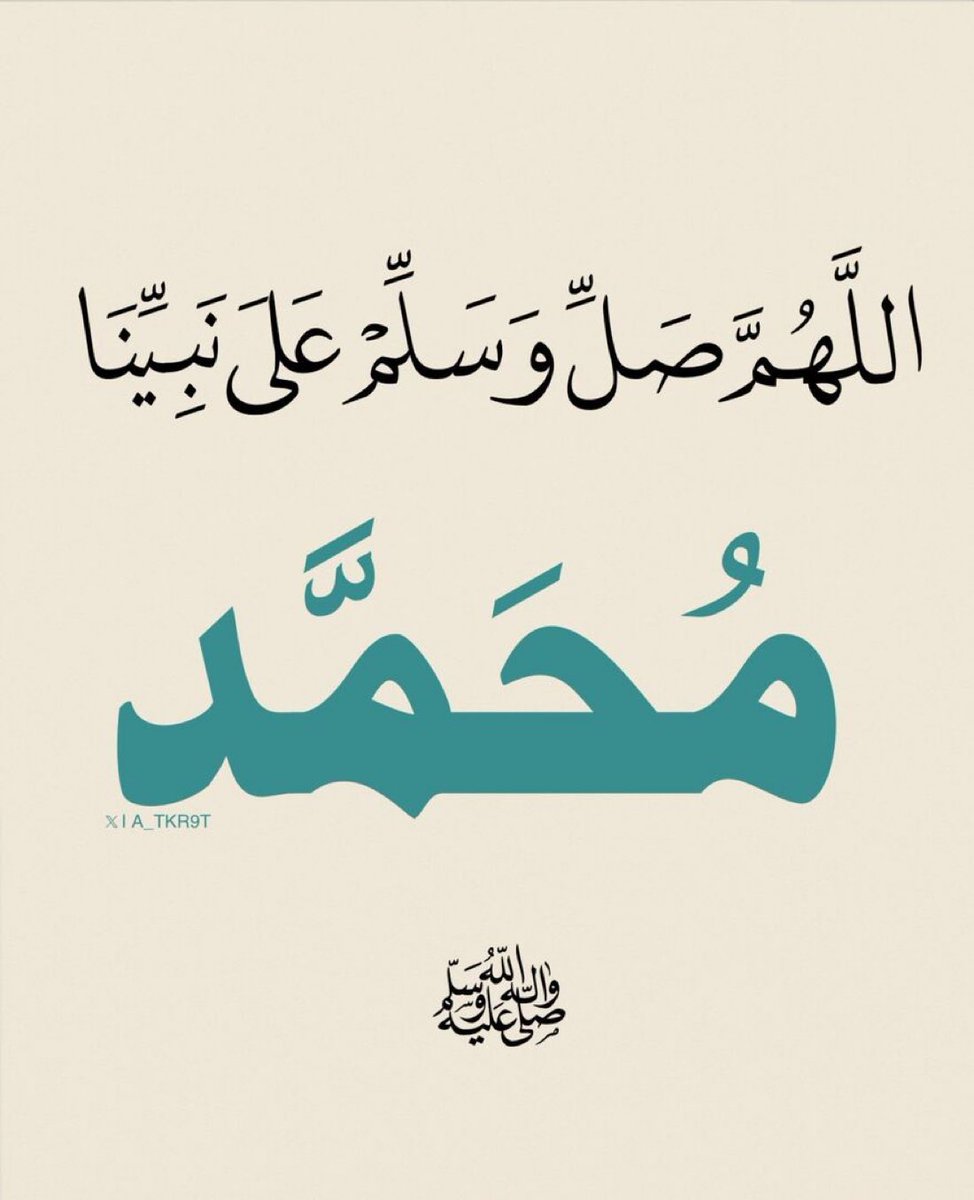 اللَّهُمَّ صَلِّ وَسَلِّمْ عَلَىَ نَبِيِّنَا
مُحَمَّد
𝕏 I A_TKR9T
صلى الله عليه وآله وسلم